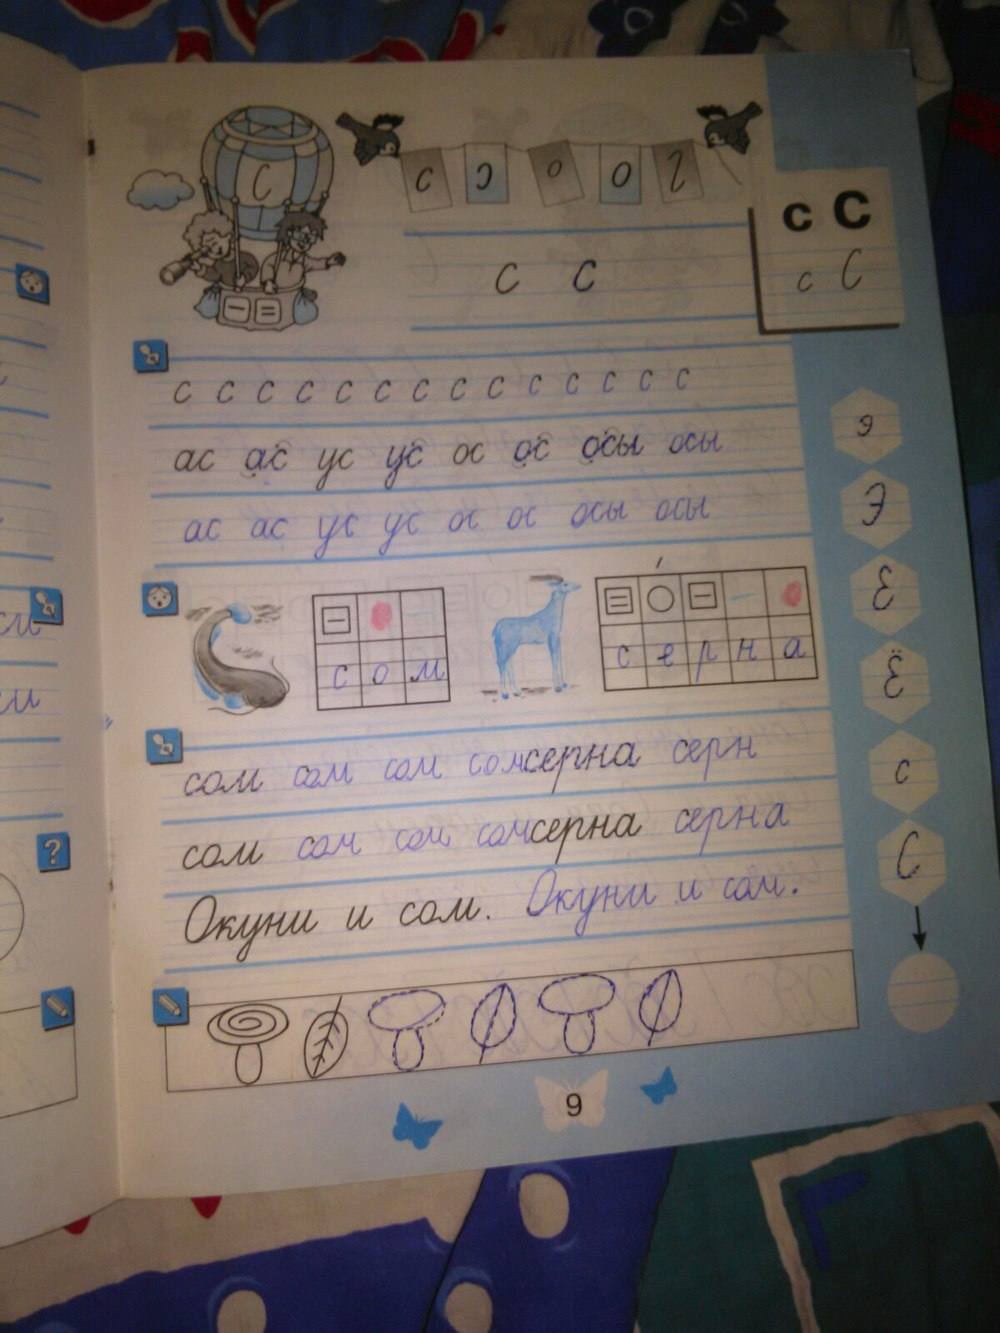 С
с с о о
с С
с с
с С
с с с с с с с с с с с с с с
ас ас ус ус ос ос осы осы
э
ас ас ус ус ос ос осы осы
Э
Є
с о м
с е р н а
Ё
сом сом сом сом серна серн
с
сом сом сом сом серна серна
С
Окуни и сом. Окуни и сом.
си
си
?
9